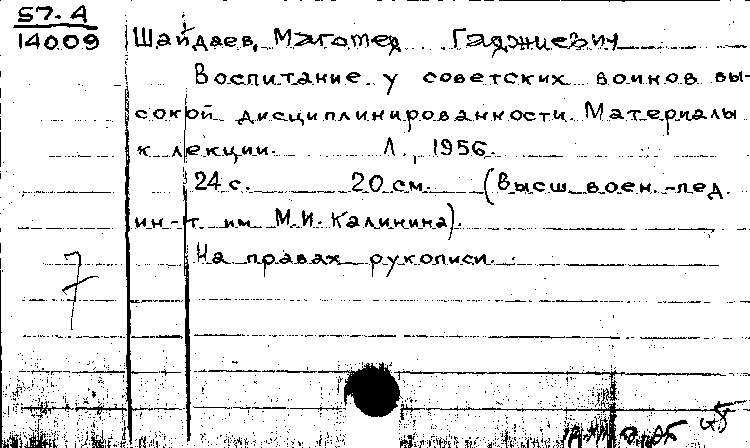 57.4
14009
Шайдаев, Магомед Гаджиевич
Воспитание у советских воинов вы-
сокой дисциплинированности. Материалы
к лекции. Л., 1956.
24 с. 20 см. (Высш. воен.-пед.
ин-т им М.И. Калинина).
На правах рукописи.
7